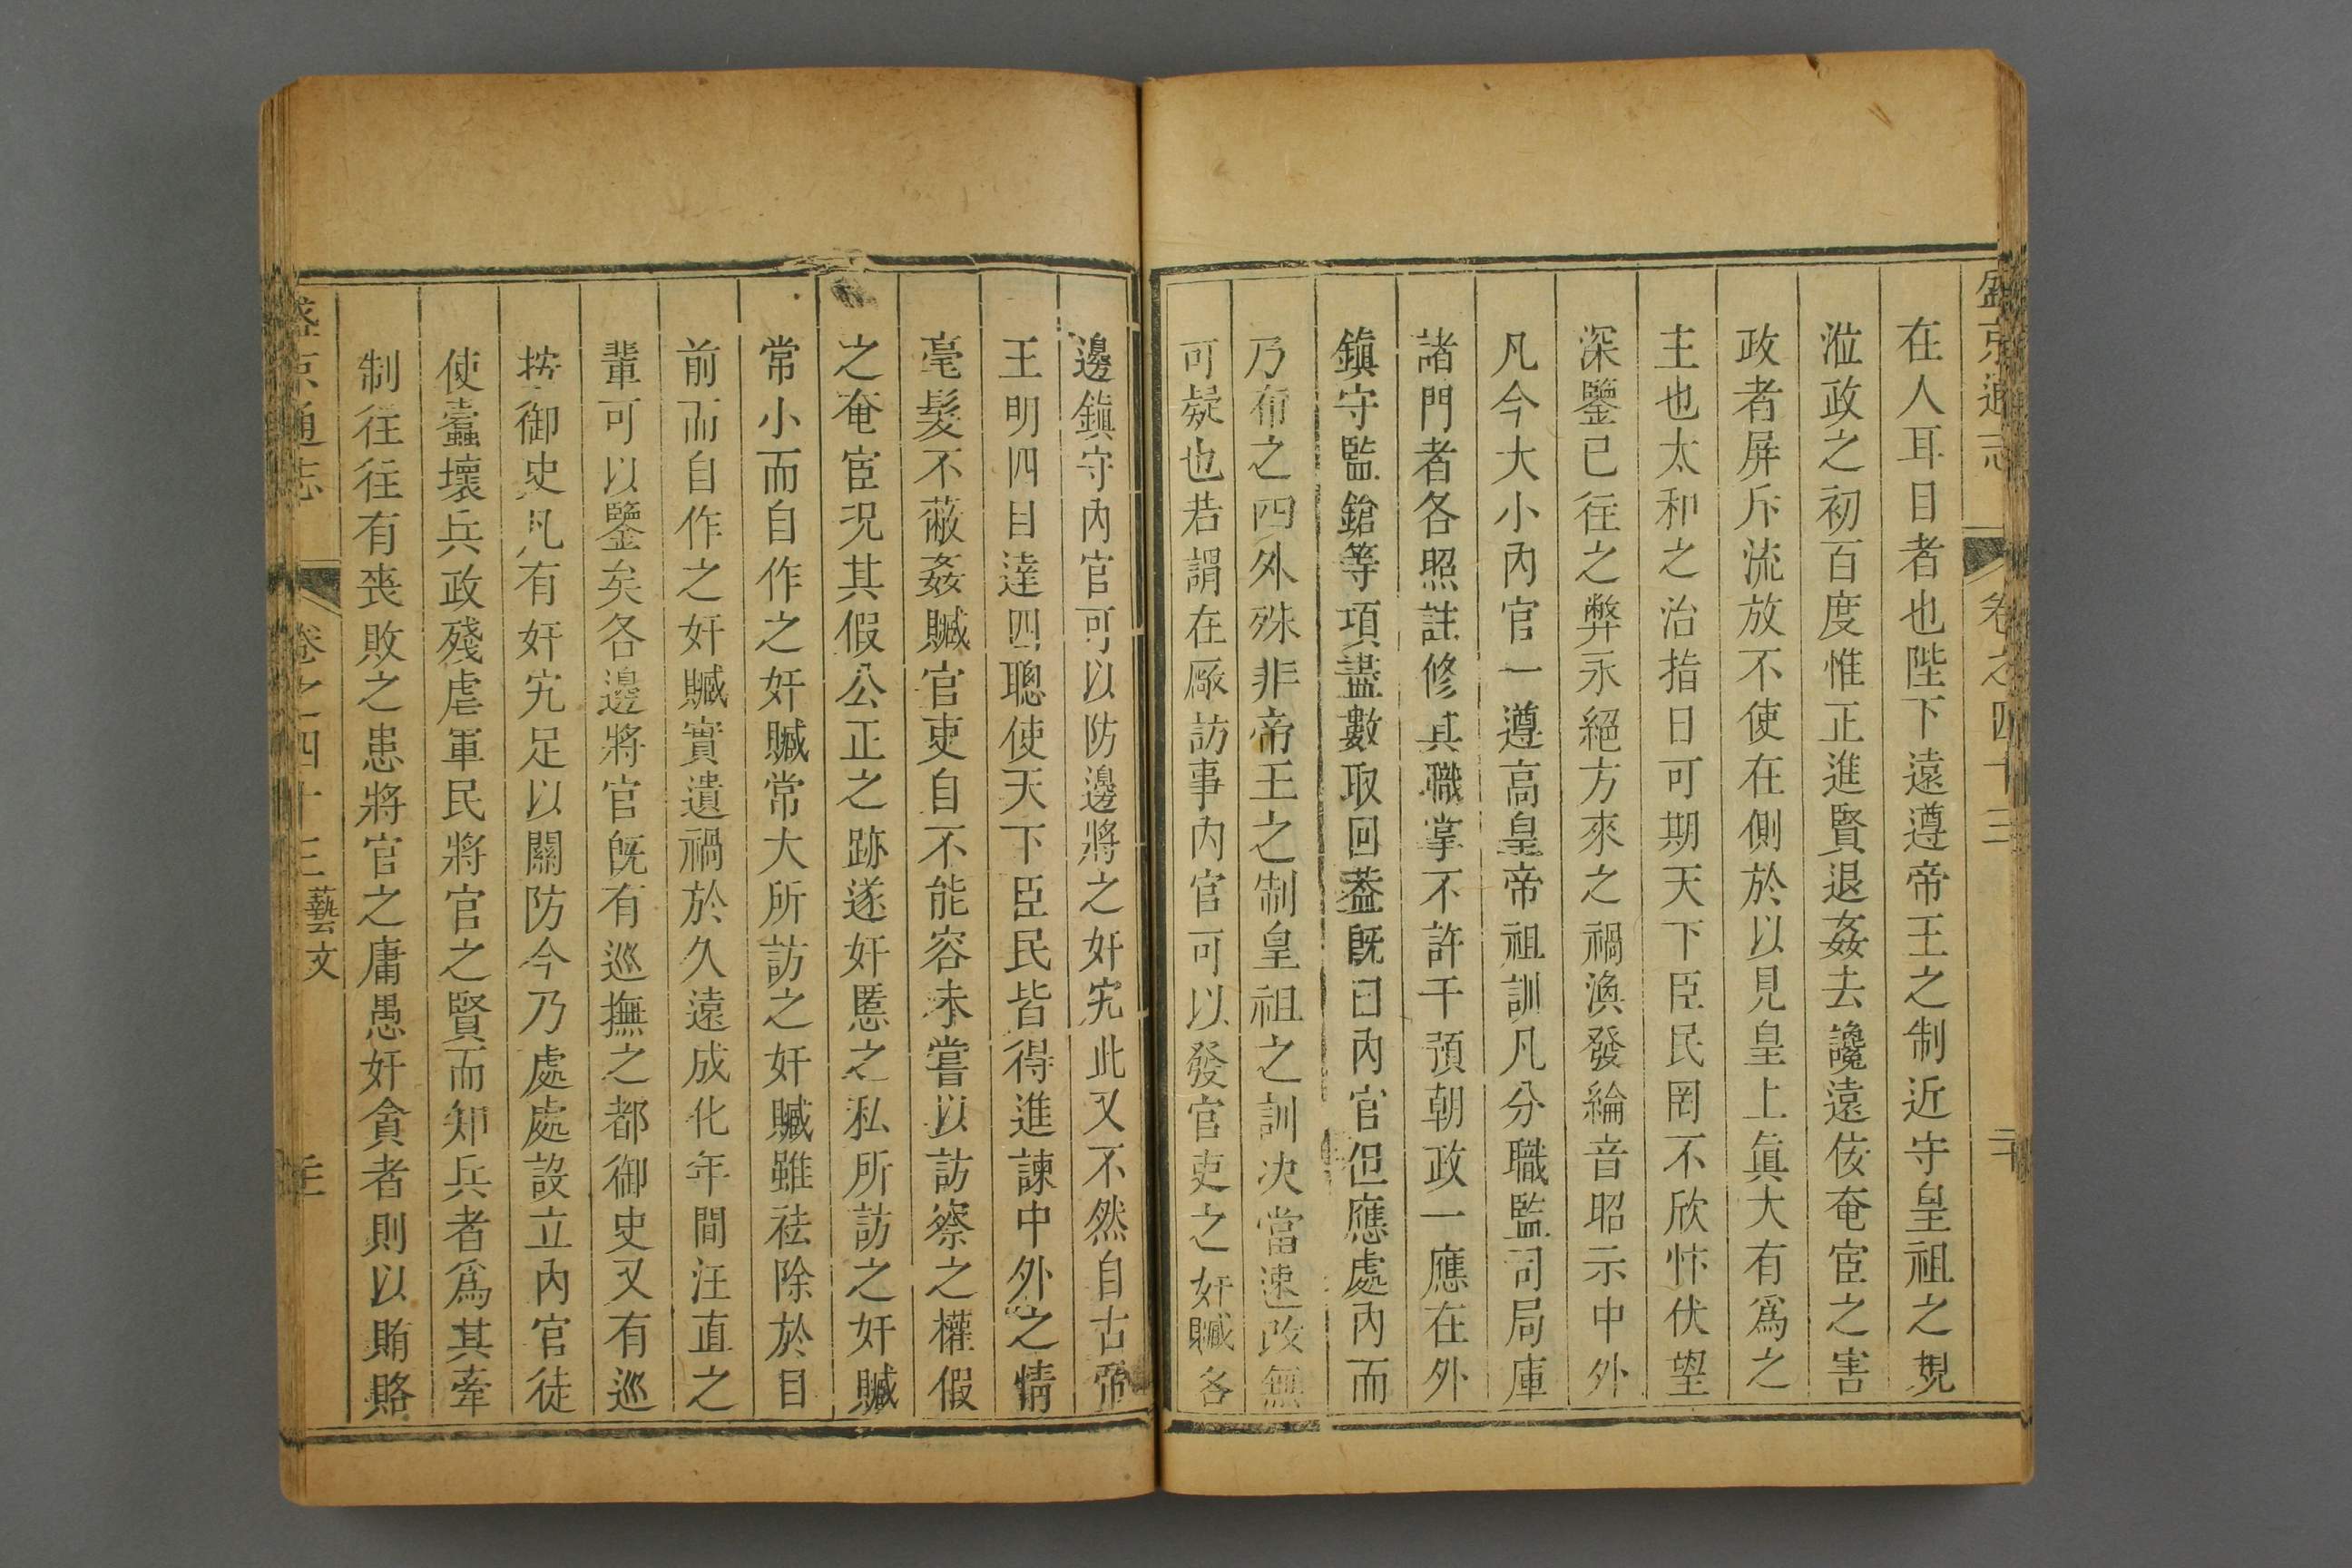 盛京通志 卷之四十三
在人耳目者也陛下遠遵帝王之制近守皇祖之規
涖政之初百度惟正進賢退姦去讒遠佞奄宦之害
政者屏斥流放不使在側於以見皇上眞大有爲之
主也太和之治指日可期天下臣民罔不欣忭伏望
深鑒已往之弊永絕方來之禍渙發綸音昭示中外
凡今大小內官一遵高皇帝祖訓凡分職監司局庫
諸門者各照註修其職掌不許干預朝政一應在外
鎮守監鎗等項盡數取回葢旣曰內官但應處內而
乃布之四外殊非帝王之制皇祖之訓决當速改無
可疑也若謂在厰訪事內官可以發官吏之奸贓各
邊鎮守內官可以防邊將之奸宄此又不然自古帝
王明四目達四聰使天下臣民皆得進諫中外之情
毫髮不蔽姦贓官吏自不能容未嘗以訪察之權假
之奄宦況其假公正之跡遂奸慝之私所訪之奸贓
常小而自作之奸贓常大所訪之奸贓雖祛除於目
前而自作之奸贓實遺禍於久遠成化年間汪直之
輩可以鑒矣各邊將官旣有巡撫之都御史又有巡
按御史凡有奸宄足以關防今乃處處設立內官徒
使蠹壞兵政殘虐軍民將官之賢而知兵者爲其牽
制往往有喪敗之患將官之庸愚奸貪者則以賄賂
盛京通志 卷之四十三 藝文